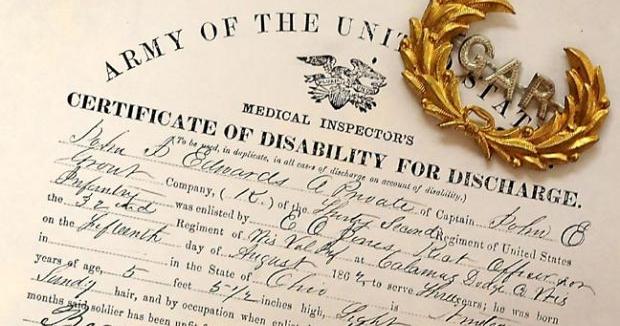 ARMY OF THE UNITED STATES
G.A.R.
MEDICAL INSPECTOR'S
CERTIFICATE OF DISABILITY FOR DISCHARGE.
(To be used, in duplicate, in all cases of discharge on account of disability.)
John Edwards a Private of Captain John E
Grout Company, (K.) of the Thirty Second Regiment of United States
Infantry was enlisted by E C Jones that Officer for
the 32nd Regiment of Wis Vol at Calamus Dodge Co Wis
on the Fifteenth day of August 1862 to serve three years; he was born
in in the State of Ohio is
years of age, 5 feet 5 1/2 inches high, Light
Sandy hair, and by occupation when enlisted
months said soldier has been unfit